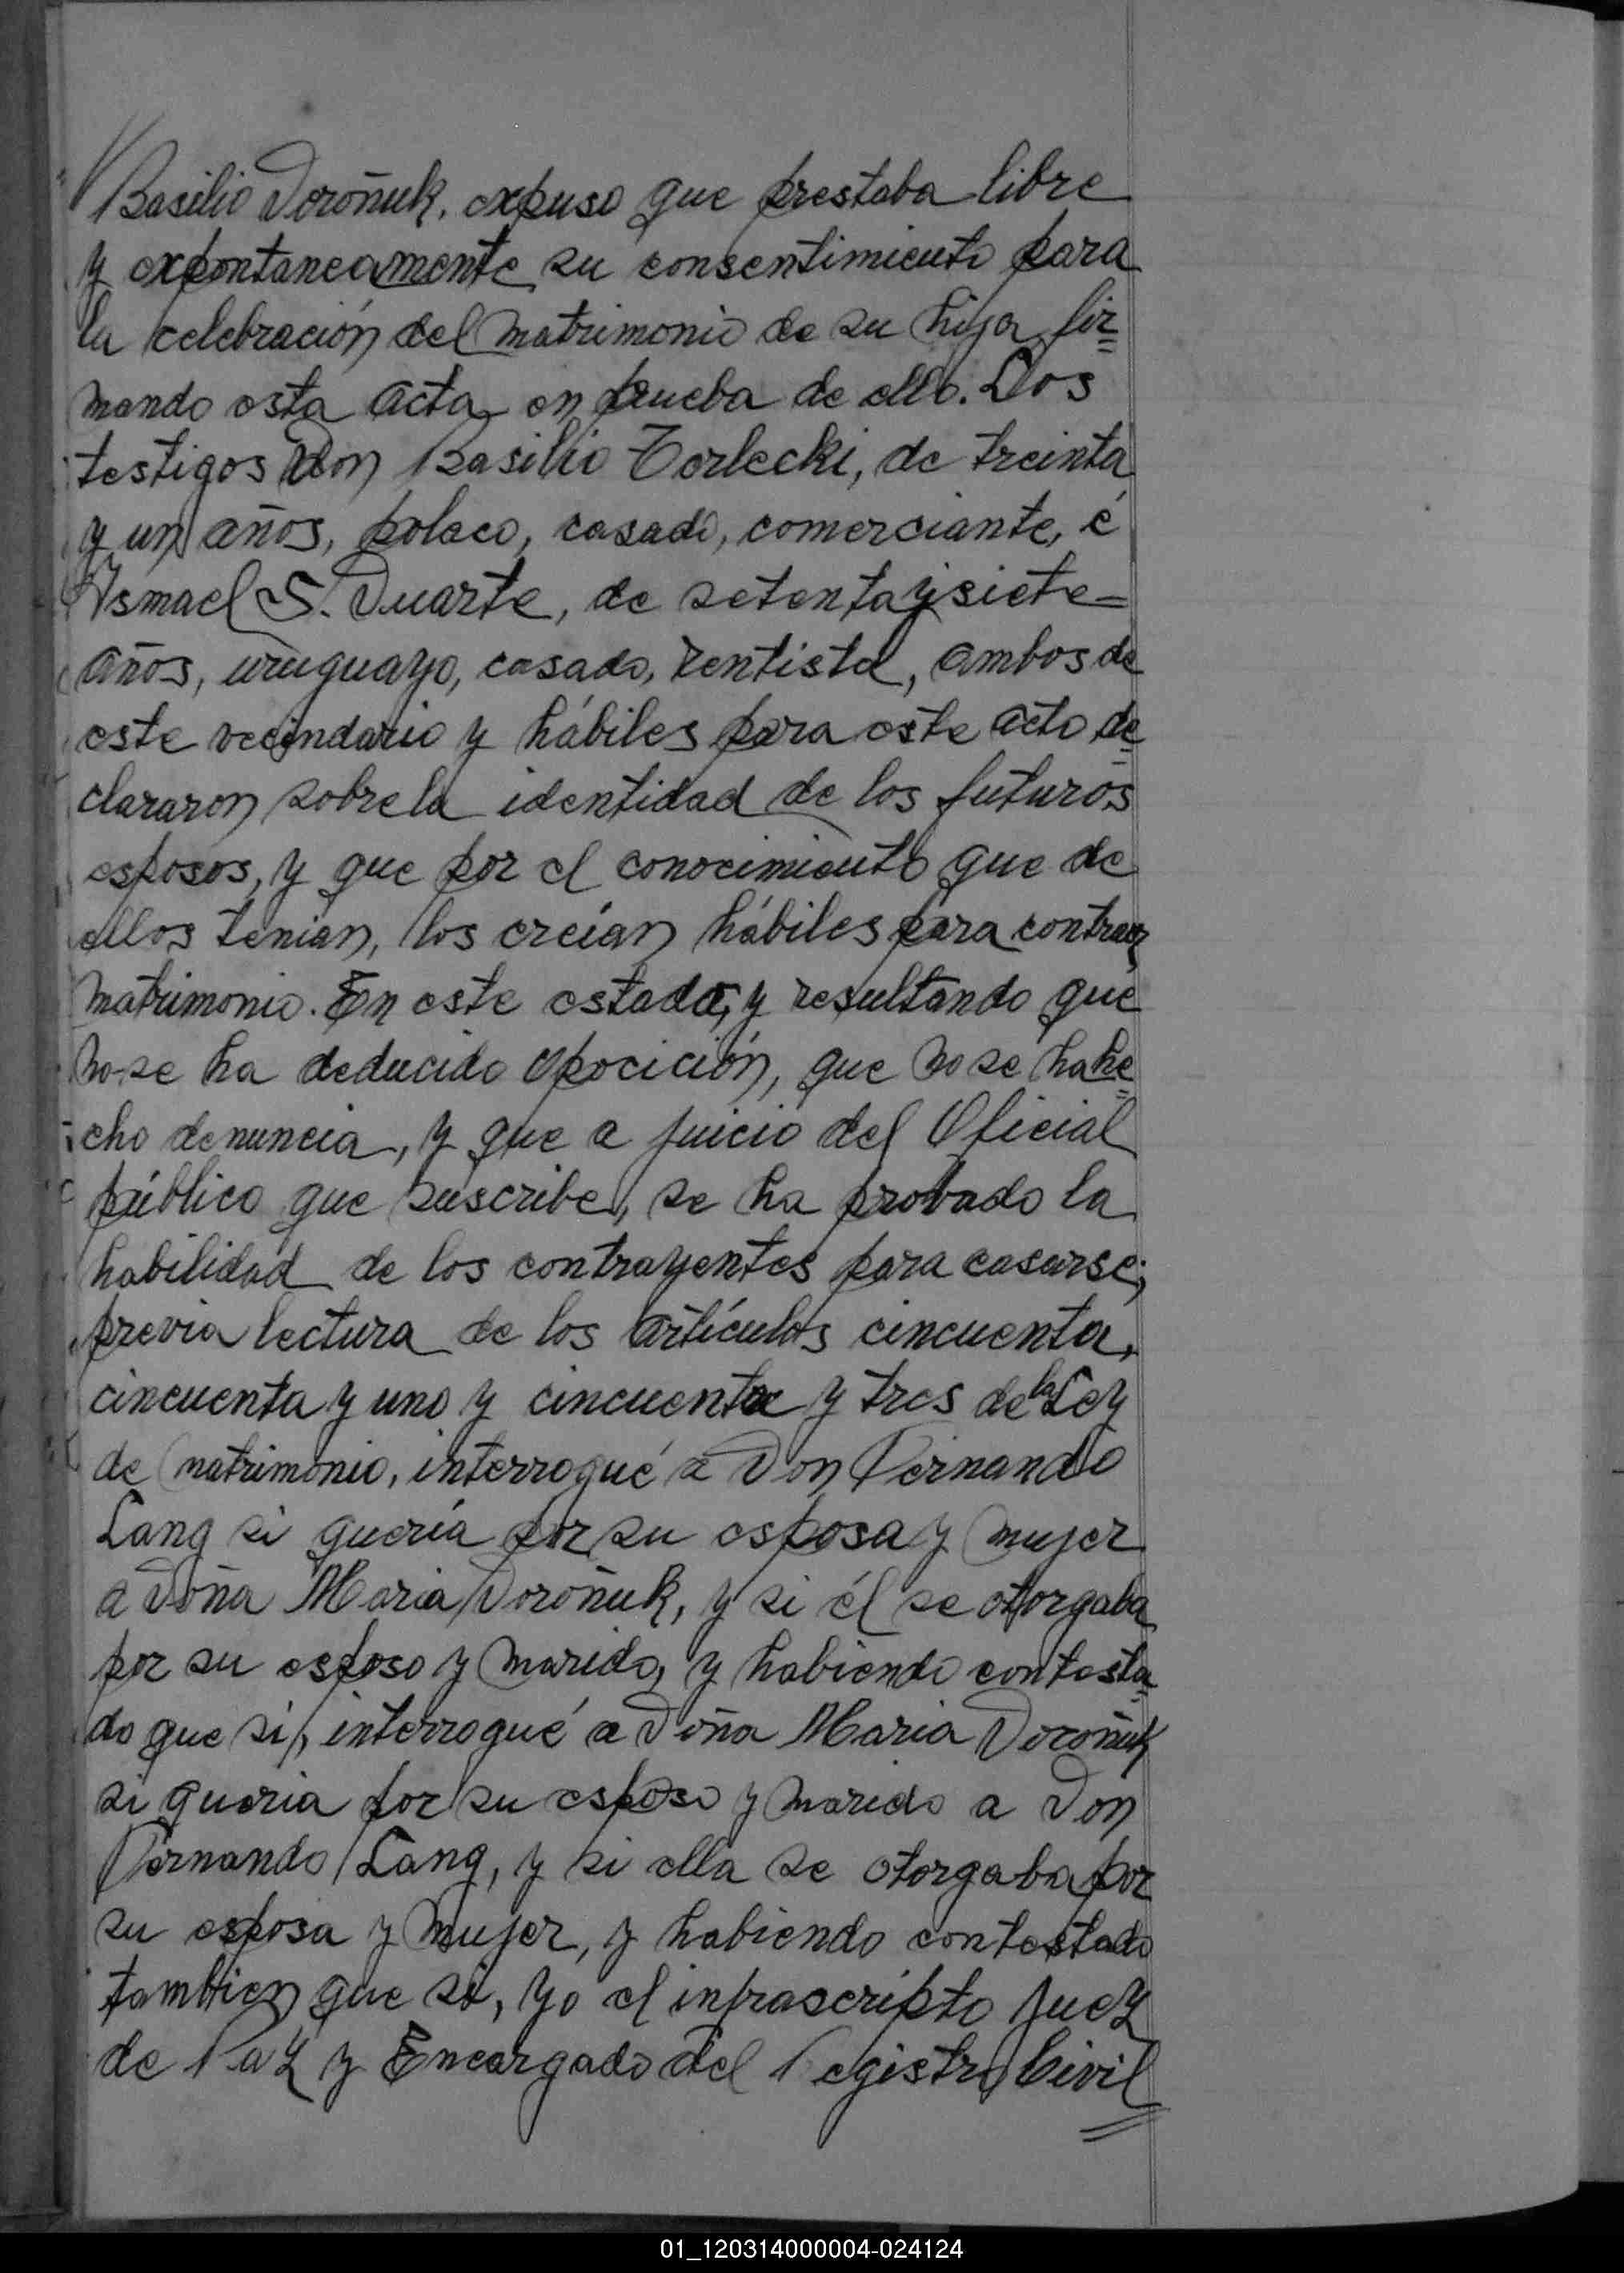 Basilio Doroñuk, expuso que prestaba libre
y expontaneamente su consentimiento para
la celebración del matrimonio de su hija fir=
mando esta acta en prueba de ello. Dos
testigos Don Basilio Terlecki, de treinta
y un años, polaco, casado, comerciante, é
Ismael S. Duarte, de setenta y siete=
años, uruguayo, casado, rentista, ambos de
este vecindario y hábiles para este acto de=
clararon sobre la identidad de los futuros
esposos, y que por el conocimiento que de
ellos tenian, los creían hábiles para contraer
matrimonio. En este estado, y resultando que
no se ha deducido oposición, que no se ha he=
cho denuncia, y que a juicio del Oficial
público que suscribe, se ha probado la
habilidad de los contrayentes para casarse;
previa lectura de los artículos cincuenta,
cincuenta y uno y cincuenta y tres de la Ley
de matrimonio, interrogué a Don Fernando
Lang si quería por su esposa y mujer
a Doña Maria Doroñuk, y si él se otorgaba
por su esposo y marido, y habiendo contesta-
do que si, interrogué a Doña Maria Doroñuk
si queria por su esposo y marido a Don
Fernando Lang, y si ella se otorgaba por
su esposa y mujer, y habiendo contestado
tambien que si, yo el infrascripto Juez
de Paz y Encargado del Registro Civil
01_120314000004-024124